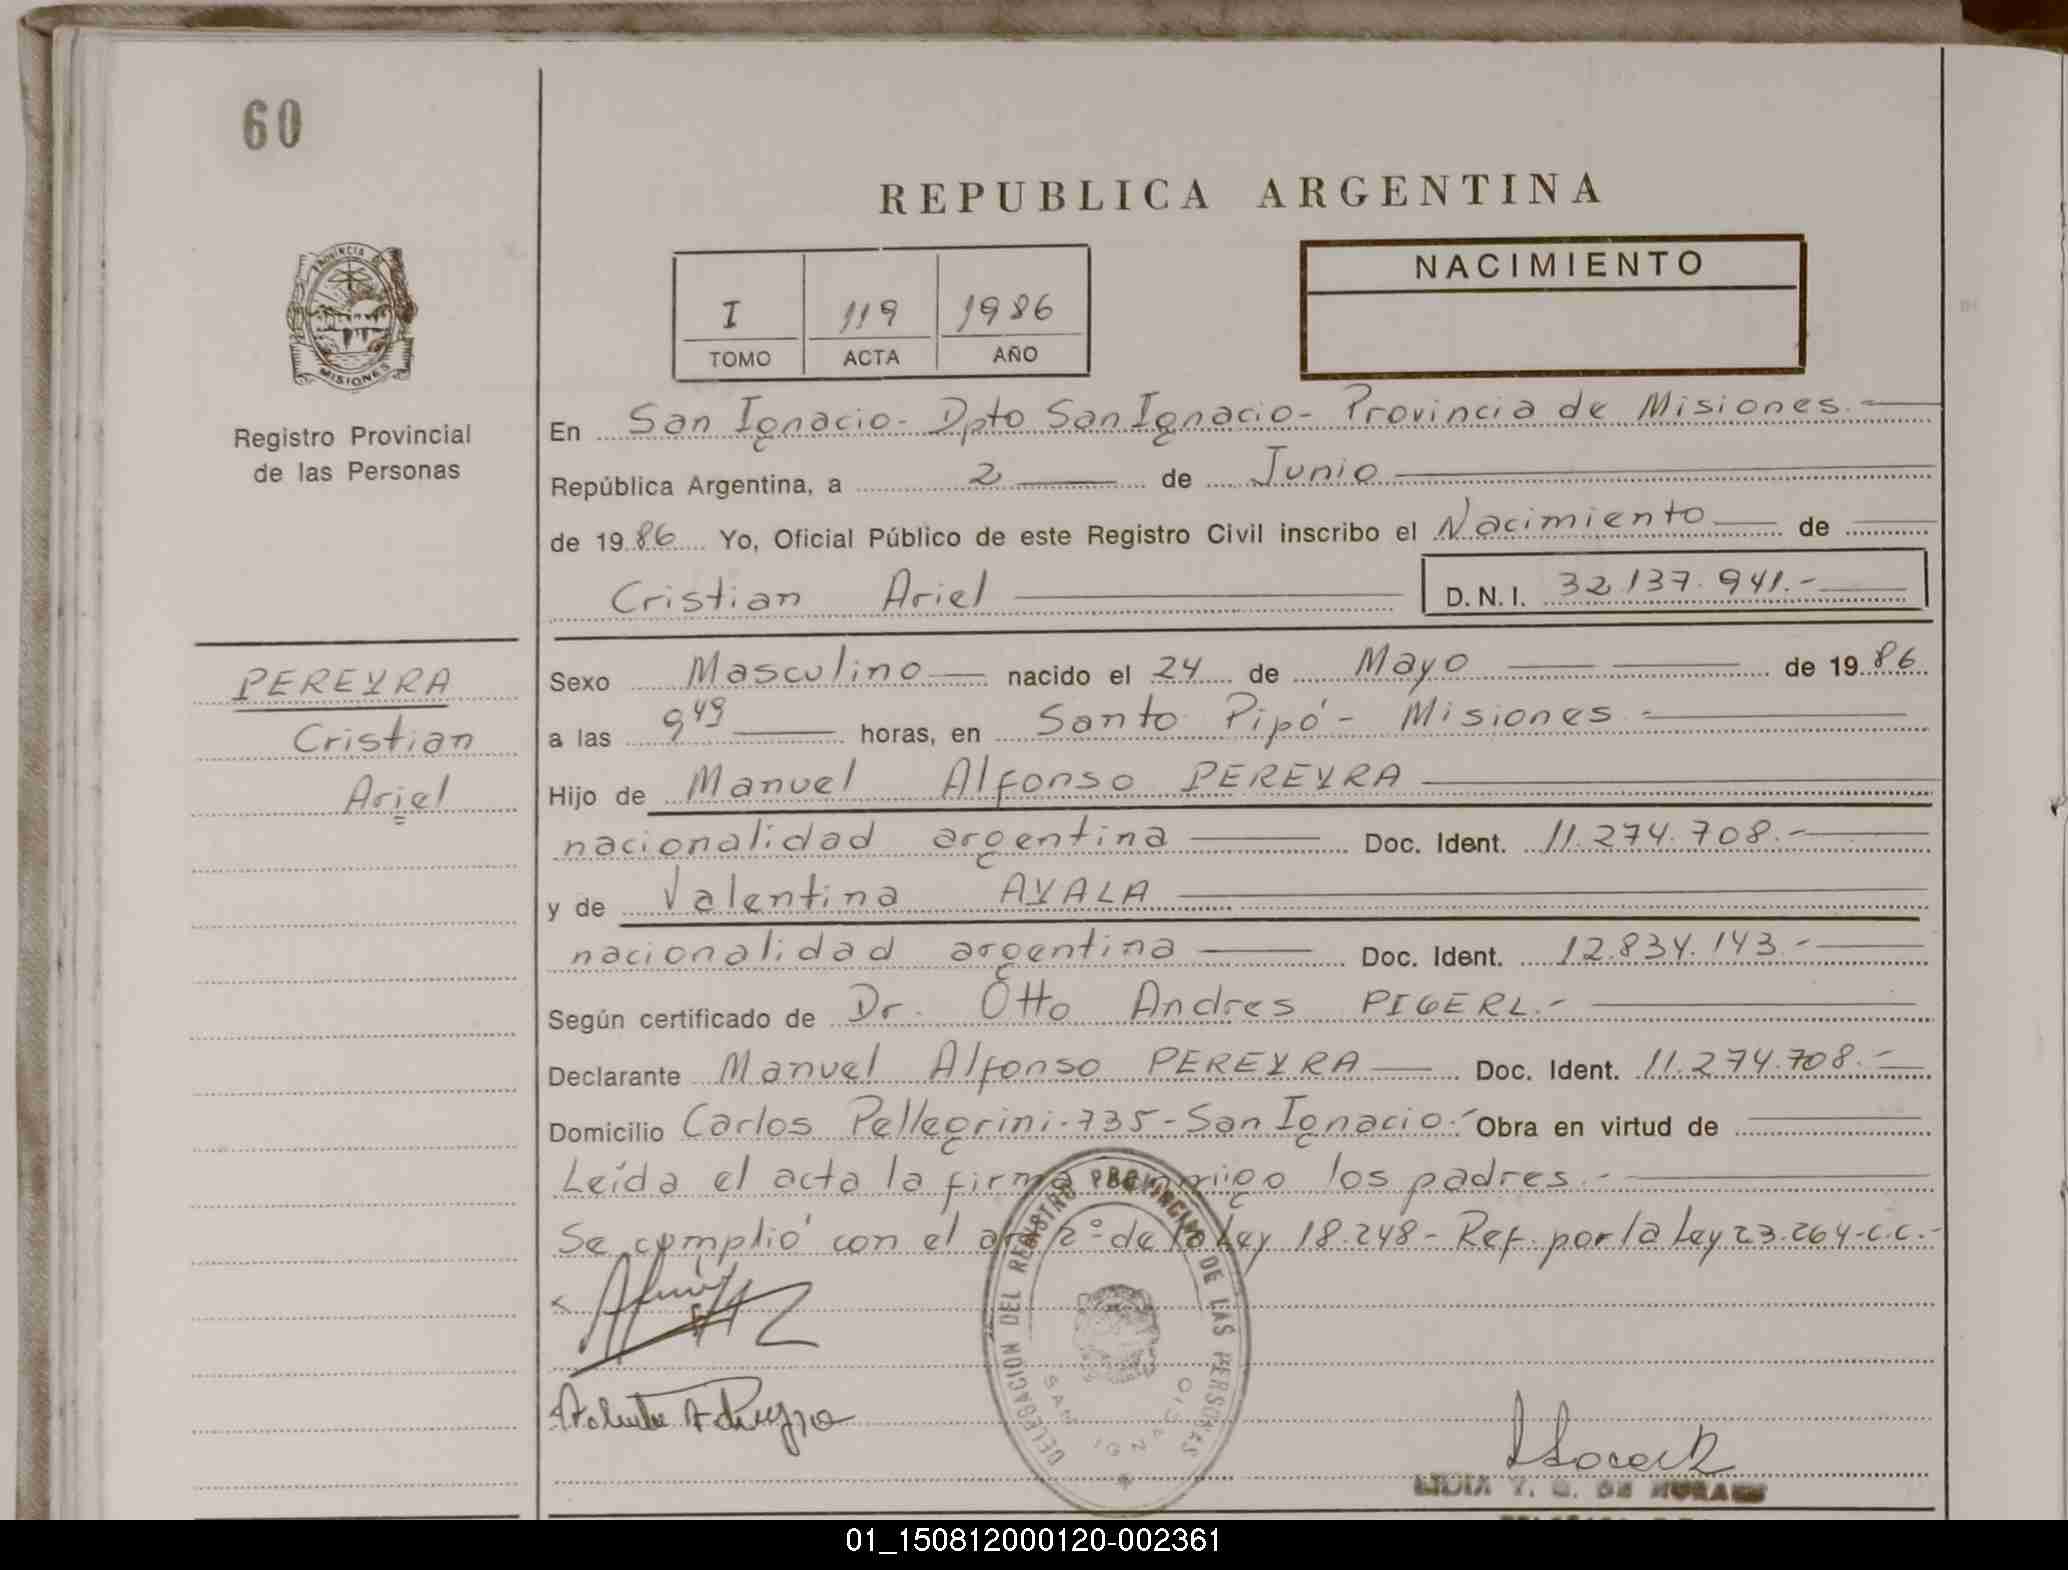 60
REPUBLICA ARGENTINA
PROVINCIA DE
MISIONES
Registro Provincial
de las Personas
I 119 1986
TOMO ACTA AÑO
NACIMIENTO
En San Ignacio - Dpto San Ignacio - Provincia de Misiones.-
República Argentina, a 2 de Junio
de 1986 Yo, Oficial Público de este Registro Civil inscribo el Nacimiento de
Cristian Ariel D.N.I. 32.137.941.-
PEREYRA
Cristian
Ariel
Sexo Masculino nacido el 24 de Mayo de 1986
a las 9 49 horas, en Santo Pipó - Misiones.-
Hijo de Manuel Alfonso PEREYRA
nacionalidad argentina Doc. Ident. 11.274.708.-
y de Valentina AYALA
nacionalidad argentina Doc. Ident. 12.834.143.-
Según certificado de Dr. Otto Andres PIGERL.-
Declarante Manuel Alfonso PEREYRA Doc. Ident. 11.274.708.-
Domicilio Carlos Pellegrini-735-San Ignacio.- Obra en virtud de
Leída el acta la firma conmigo los padres.-
Se cumplió con el art 2º de la Ley 18.248 - Ref. por la Ley 23.264-c.c.-
DELEGACION DEL REGISTRO PROVINCIAL DE LAS PERSONAS
SAN IGNACIO
LIDIA
01_150812000120-002361